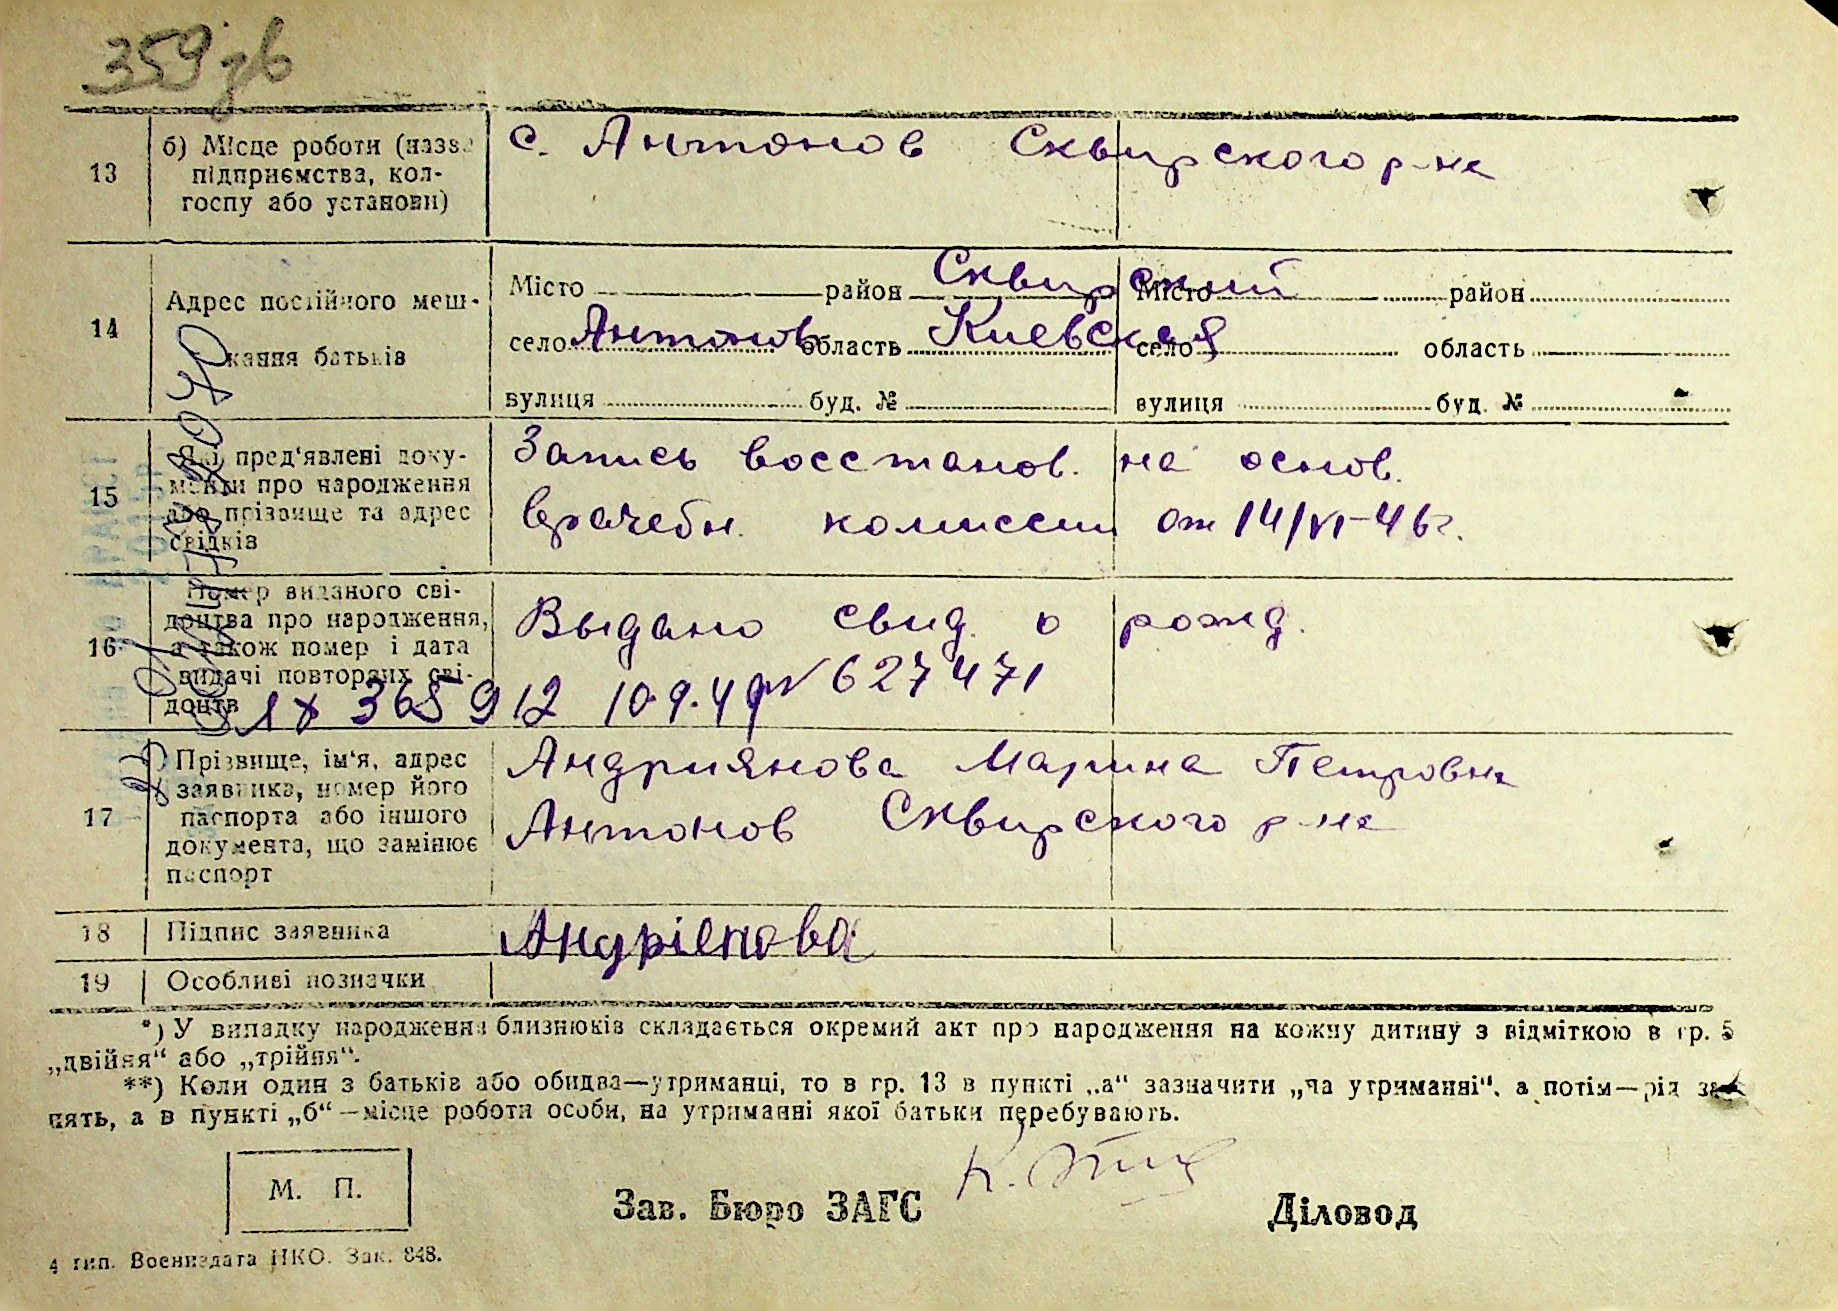 359зв
13
б) Місце роботи (назва
підприємства, кол-
госпу або установи)
с. Антонов Сквирского р-на
14
Адрес постійного меш-
кання батьків
Місто район Сквирский
село Антонов область Киевская
вулиця буд. №
Місто район
село область
вулиця буд. №
15
Які пред'явлені доку-
менти про народження
або прізвище та адрес
свідків
Запись восстанов. на основ.
врачебн. комиссии от 14/VI-46г.
16
Номер виданого сві-
доцтва про народження,
а також номер і дата
видачі повторних сві-
доцтв
Выдано свид. о рожд.
№ 627471
365912 10.9.49
17
Прізвище, ім'я, адрес
заявника, номер його
паспорта або іншого
документа, що замінює
паспорт
Андриянова Марина Петровна
Антонов Сквирского р-на
18
Підпис заявника
Андріенова
19
Особливі позначки
*) У випадку народження близнюків складається окремий акт про народження на кожну дитину з відміткою в гр. 5
„двійня“ або „трійня“.
**) Коли один з батьків або обидва—утриманці, то в гр. 13 в пункті „а“ зазначити „на утриманні“, а потім—рід за-
нять, а в пункті „б“—місце роботи особи, на утриманні якої батьки перебувають.
М. П.
Зав. Бюро ЗАГС
Діловод
4 тип. Воениздата НКО. Зак. 848.